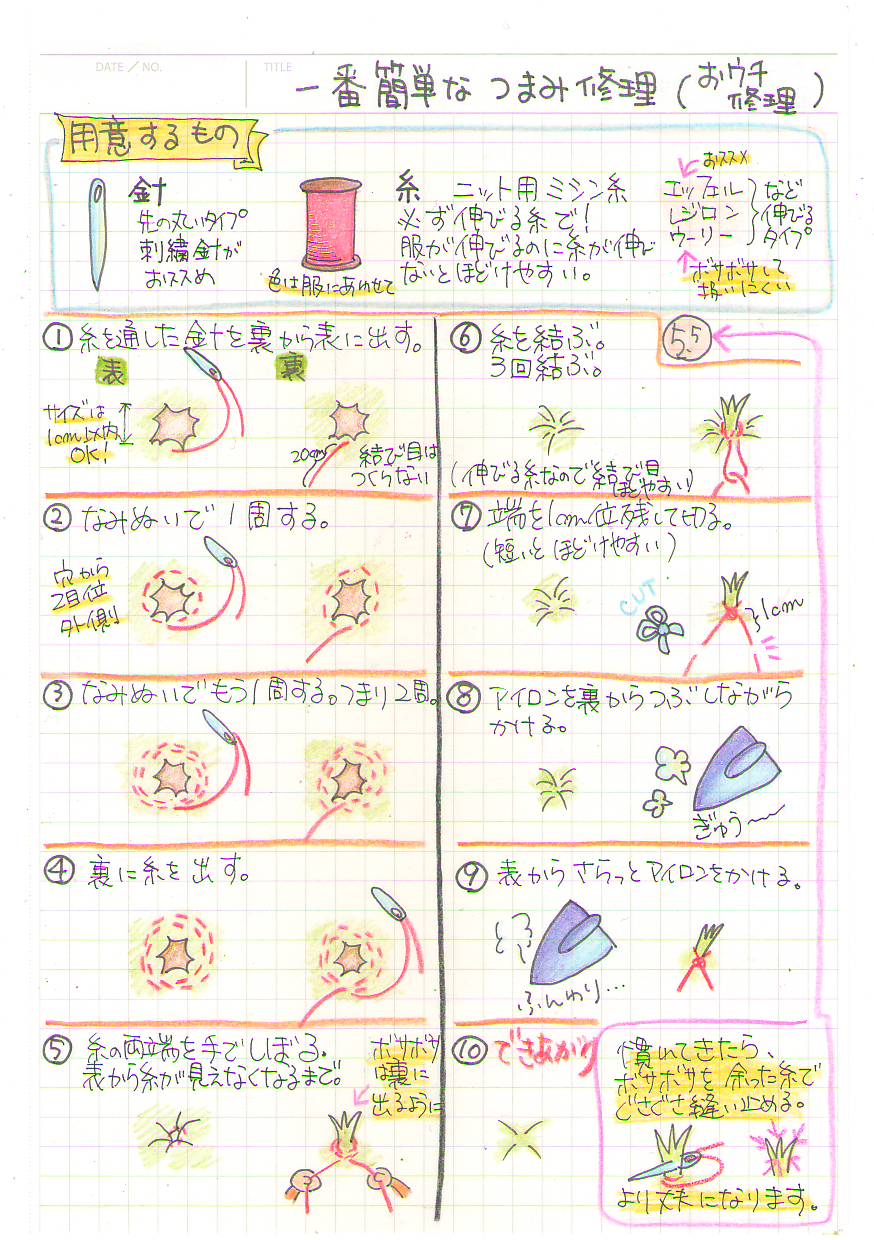 DATE/NO.
TITLE
一番簡単な つまみ修理 (おウチ修理)
用意するもの
針
先の丸いタイプ
刺繍針が
おススメ
色は服にあわせて
糸 ニット用 ミシン糸
必ず伸びる糸で!
服が伸びるのに糸が伸び
ないとほどけやすい。
おススメ
エッフェル
レジロン
ウーリー
など
伸びる
タイプ
ボサボサして
扱いにくい
① 糸を通した針を裏から表に出す。
表
裏
サイズは
1cm以内
OK!
20cm
結び目は
つくらない
② なみぬいで1周する。
穴から
2目位
外側
③ なみぬいでもう1周する。つまり2周。
④ 裏に糸を出す。
⑤ 糸の両端を手でしぼる.
表から糸が見えなくなるまで。
ボサボサ
は裏に
出るように
⑥ 糸を結ぶ。
3回結ぶ。
5.5
(伸びる糸なので結び目
ほどけやすい)
⑦ 端を1cm位残して切る。
(短いとほどけやすい)
CUT
1cm
⑧ アイロンを裏からつぶしながら
かける。
ぎゅう〜
⑨ 表から さらっとアイロンをかける。
ふんわり…
⑩ できあがり
慣れてきたら、
ボサボサを 余った糸で
ぐさぐさ縫い止める。
より丈夫になります。